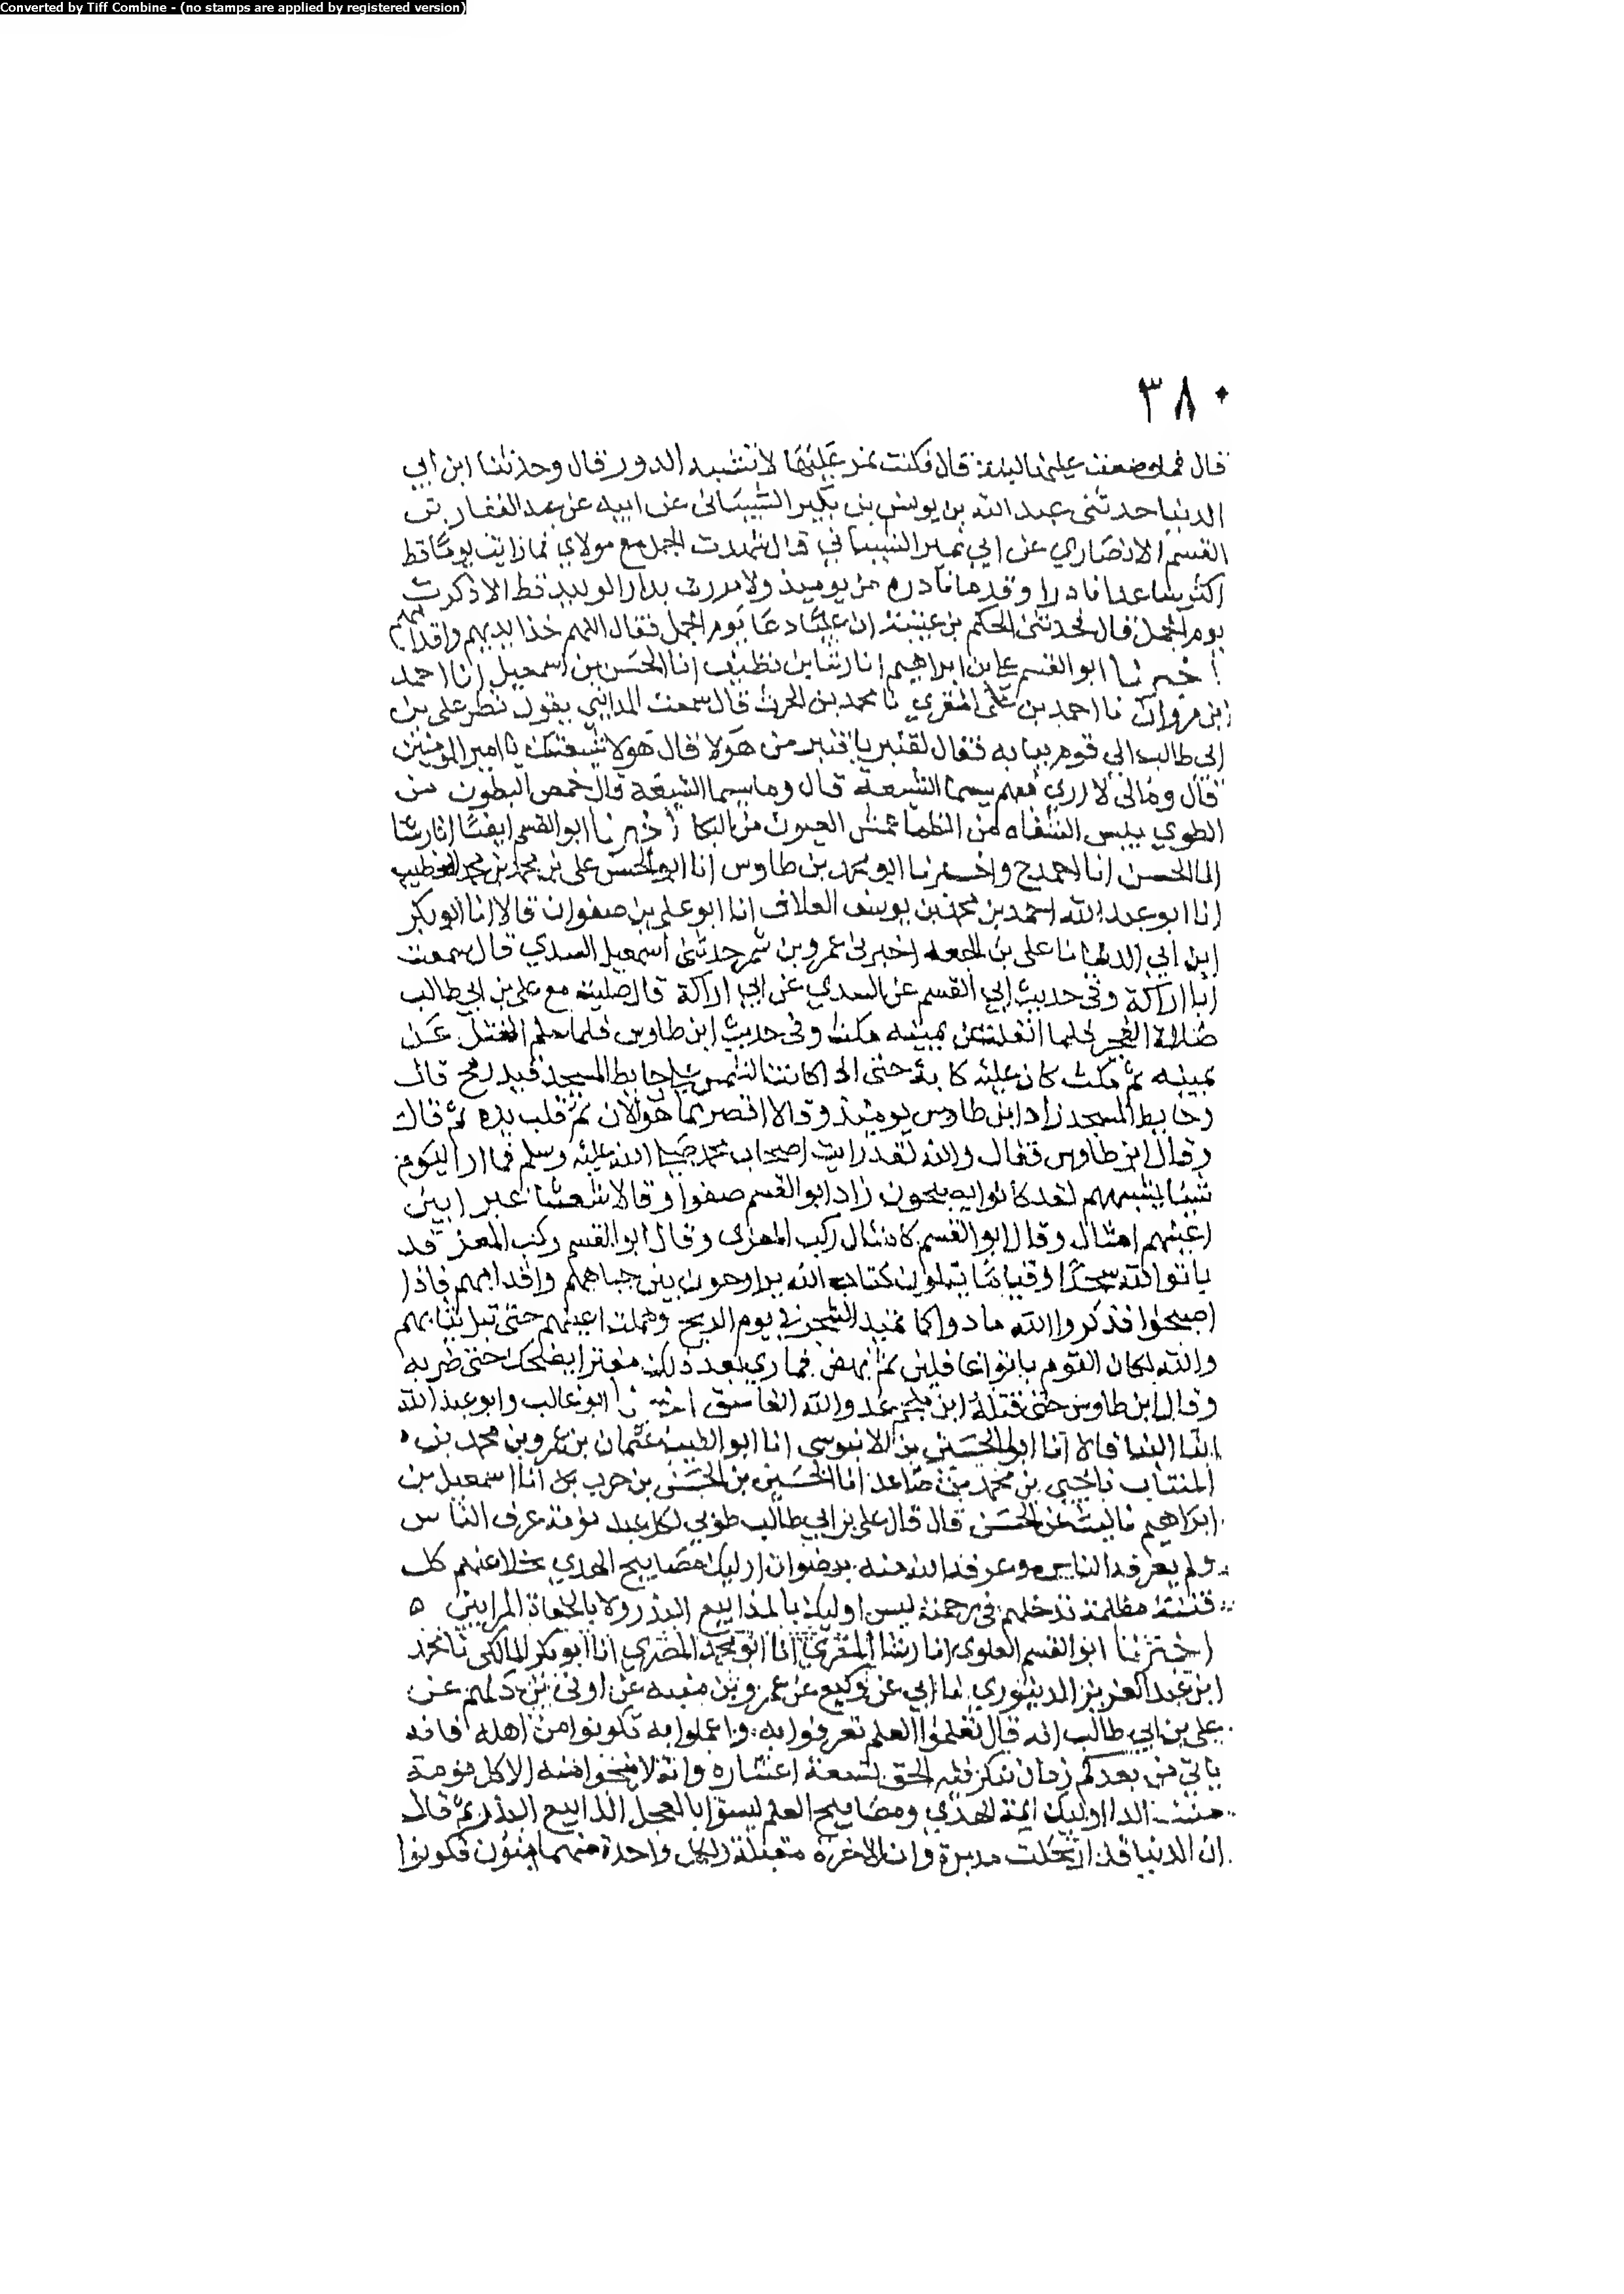 Converted by Tiff Combine - (no stamps are applied by registered version)
٣٨٠
قال فكنت نمر عليها لا تشبه الدور قال وحدثنا ابن ابي
الدنيا حدثني عبد الله بن يونس بن بكير الشيباني عن ابيه عن عبد الغفار بن
القسم الانصاري عن ابي الشيباني قال شهدت الجمل مع مولاي فما رايت يوما قط
اكثر ساعدا نادرا وقدما نادره من يوميذ ولا مررت بدار الوليد قط الا ذكرت
يوم الجمل قال فحدثني الحكم بن عيينة ان عليا دعا يوم الجمل فقال اللهم خذ ايديهم واقدامهم
اخبرنا ابو القسم علي بن ابراهيم انا رشا بن نظيف انا الحسن بن اسمعيل انا احمد
ابن مروان نا احمد بن علي المقري نا محمد بن الحرث قال سمعت المدايني يقول نظر علي بن
ابي طالب الى قوم ببابه فقال لقنبر يا قنبر من هولا قال هولا شيعتك يا امير المومنين
قال ومالي لا ارى فيهم سيما الشيعة قال وما سيما الشيعة قال خمص البطون من
الطوي يبس الشفاه من الظما عمش العيون من البكا اخبرنا ابو القسم ايضا انا رشا
انا الحسن انا احمد ح واخبرنا ابو محمد بن طاوس انا ابو الحسن علي بن محمد بن محمد الخطيب
انا ابو عبد الله احمد بن محمد بن يوسف العلاف انا ابو علي بن صفوان قالا انا ابو بكر
ابن ابي الدنيا نا علي بن الجعد اخبرني عمرو بن شمر حدثني اسمعيل السدي قال سمعت
ابا اراكة وفي حديث ابي القسم عن السدي عن ابي اراكة قال صليت مع علي بن ابي طالب
صلاة الفجر فلما انفتل عن يمينه مكث وفي حديث ابن طاوس فلما سلم انفتل عن
يمينه ثم مكث كان عليه كابة حتى اذا كانت الشمس على حايط المسجد قيد رمح قال
وحايط المسجد زاد ابن طاوس يوميذ وقالا اقصر مما هو الان ثم قلب يده ثم قال
وقال ابن طاوس فقال والله لقد رايت اصحاب محمد صلى الله عليه وسلم فما ارا اليوم
شيا يشبههم لقد كانوا يصبحون زاد ابو القسم صفرا وقالا شعثا غبرا بين
اعينهم امثال وقال ابو القسم كامثال ركب المعزى وقال ابو القسم ركب المعز قد
باتوا لله سجدا وقياما يتلون كتاب الله يراوحون بين جباههم واقدامهم فاذا
اصبحوا فذكروا الله مادوا كما تميد الشجر في يوم الريح وهملت اعينهم حتى تبل ثيابهم
والله لكان القوم باتوا غافلين ثم نهض فما ري بعد ذلك مفترا يضحك حتى ضربه
وقال ابن طاوس حتى قتله ابن ملجم عدو الله الفاسق اخبرنا ابو غالب وابو عبد الله
ابنا البنا قالا انا ابو الحسين بن الابنوسي انا ابو الطيب عثمان بن عمرو بن محمد بن
المنتاب نا يحيى بن محمد بن صاعد انا الحسين بن الحسن بن حرب انا اسمعيل بن
ابراهيم نا ليث عن الحسن قال قال علي بن ابي طالب طوبى لكل عبد نومة عرف الناس
ولم يعرفه الناس وعرفه الله منه برضوان اوليك مصابيح الهدي تجلا عنهم كل
فتنة مظلمة تدخلهم في رحمته ليس اوليك بالمذاييع البذر ولا بالجفاة المرايين ه
اخبرنا ابو القسم العلوي انا رشا المقري انا ابو محمد المصري انا ابو بكر المالكي نا محمد
ابن عبد العزيز الدينوري نا ابي عن وكيع عن عمرو بن منبه عن اوفى بن دلهم عن
علي بن ابي طالب انه قال تعلموا العلم تعرفوا به واعملوا به تكونوا من اهله فانه
ياتي من بعدكم زمان ينكر فيه الحق تسعة اعشاره وانه لا ينجوا منه الا كل نومة
اوليك ايمة الهدي ومصابيح العلم ليسوا بالعجل المذاييع البذر ثم قال
ان الدنيا قد ارتحلت مدبرة وان الاخرة مقبلة ولكل واحدة منهما بنون فكونوا